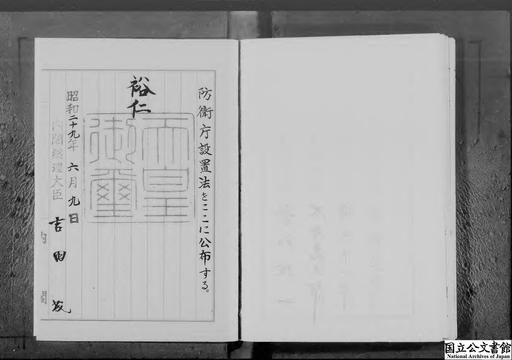 防衛庁設置法をここに公布する。
裕仁
天皇御璽
昭和二十九年六月九日
内閣総理大臣 吉田茂
国立公文書館
National Archives of Japan